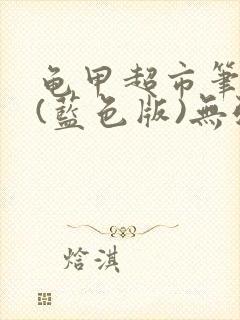 龟甲超市筆
(藍色版)無
焓淇